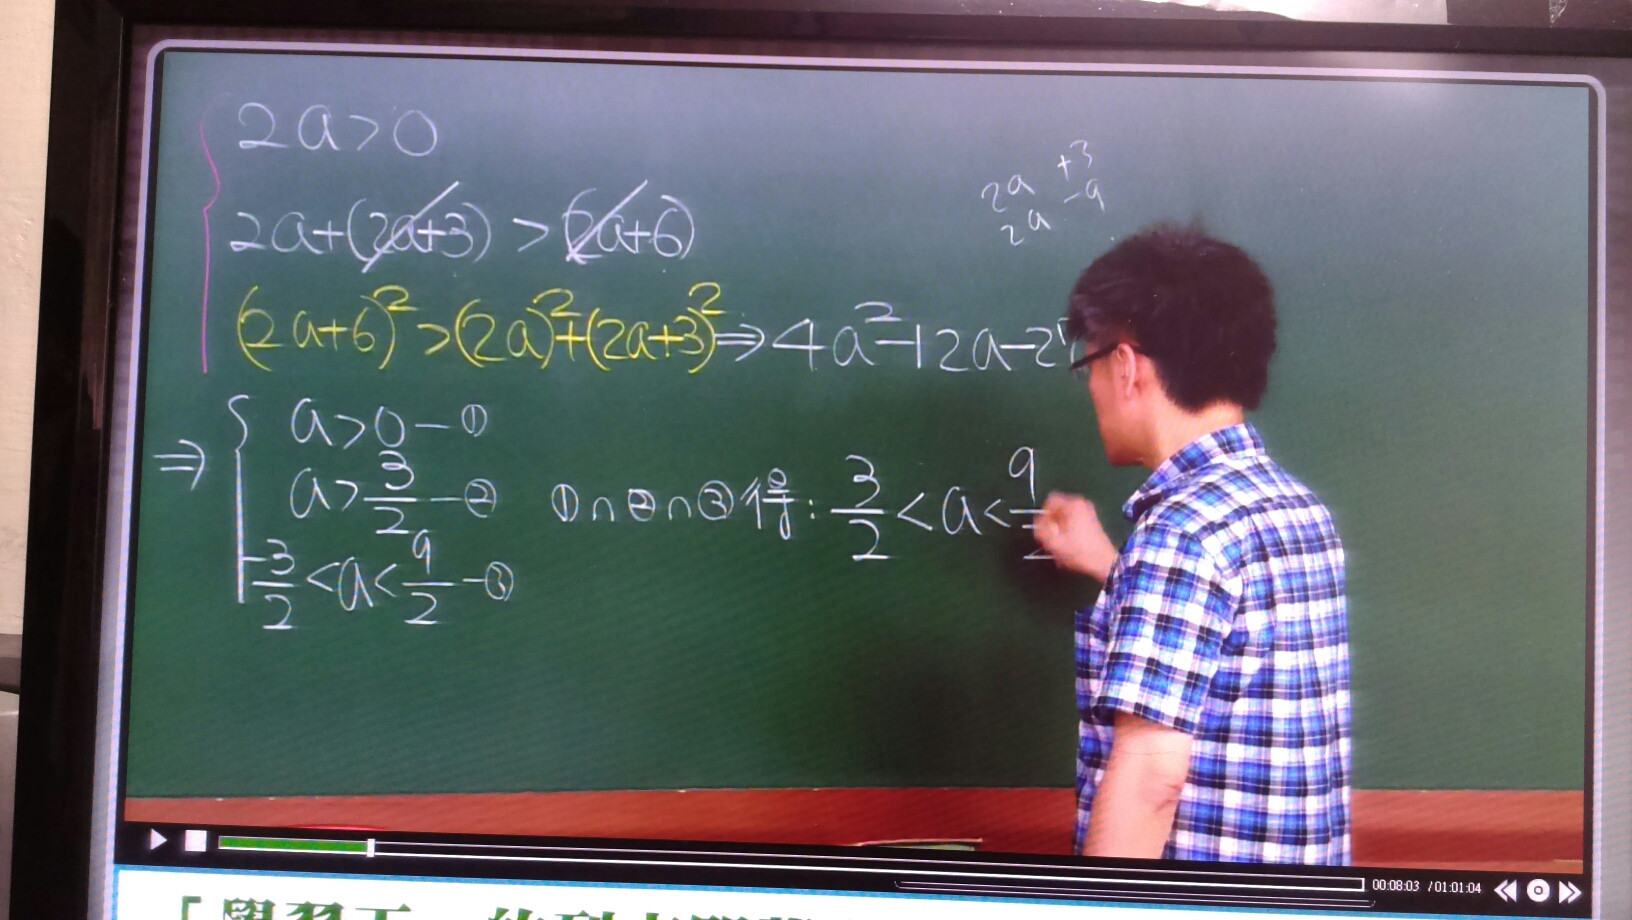 2a>0
2a+(2a+3) > (2a+6)
(2a+6)²>(2a)²+(2a+3)²⇒4a²-12a-2
2a +3
2a -9
⇒ { a>0-①
a>3/2-②
-3/2<a<9/2-③
①∩②∩③得:3/2<a<9/2
00:08:03 /01:01:04